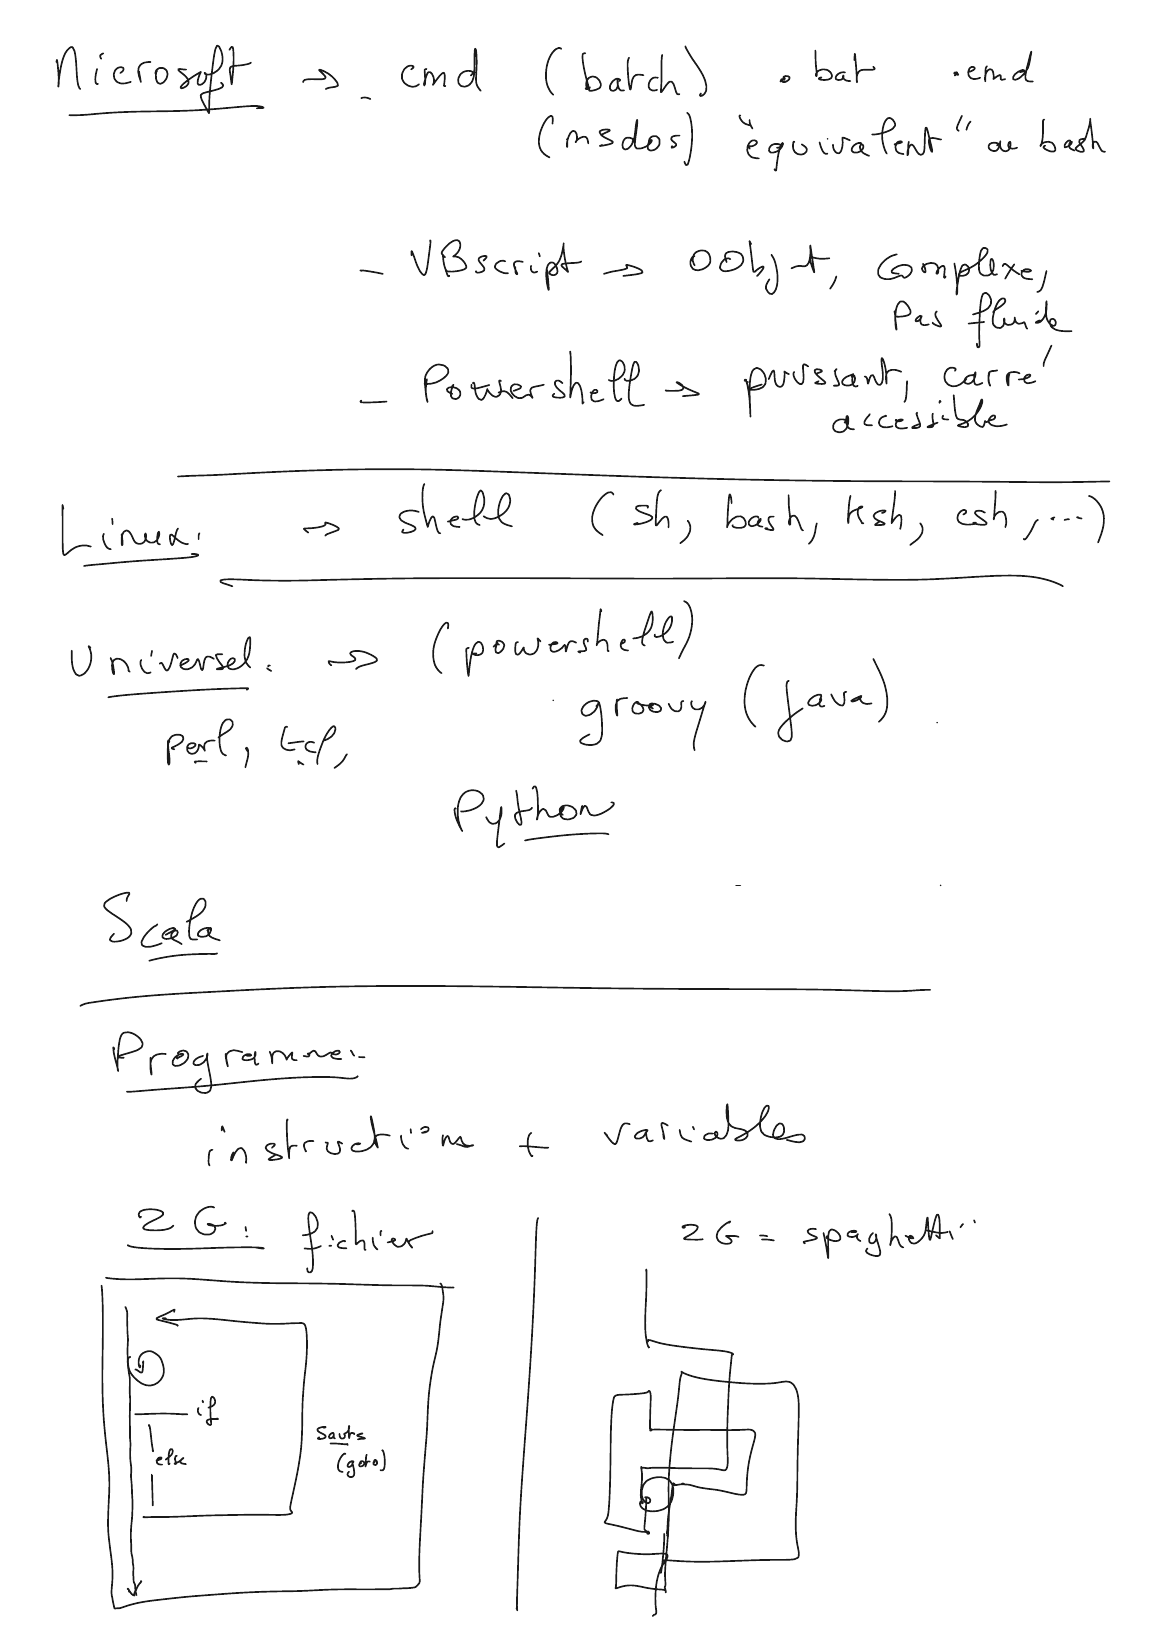 Microsoft → - cmd (batch) .bat .cmd
(msdos) "équivalent" au bash
- VBscript → OObjt, complexe,
Pas fluide
- Powershell → puissant, carré
accessible
Linux: → shell (sh, bash, ksh, csh, ...)
Universel: → (powershell)
groovy (java)
perl, tcl,
Python
Scala
Programme:
instructions + variables
2G: fichier
2G = spaghetti
if
else
Sauts
(goto)